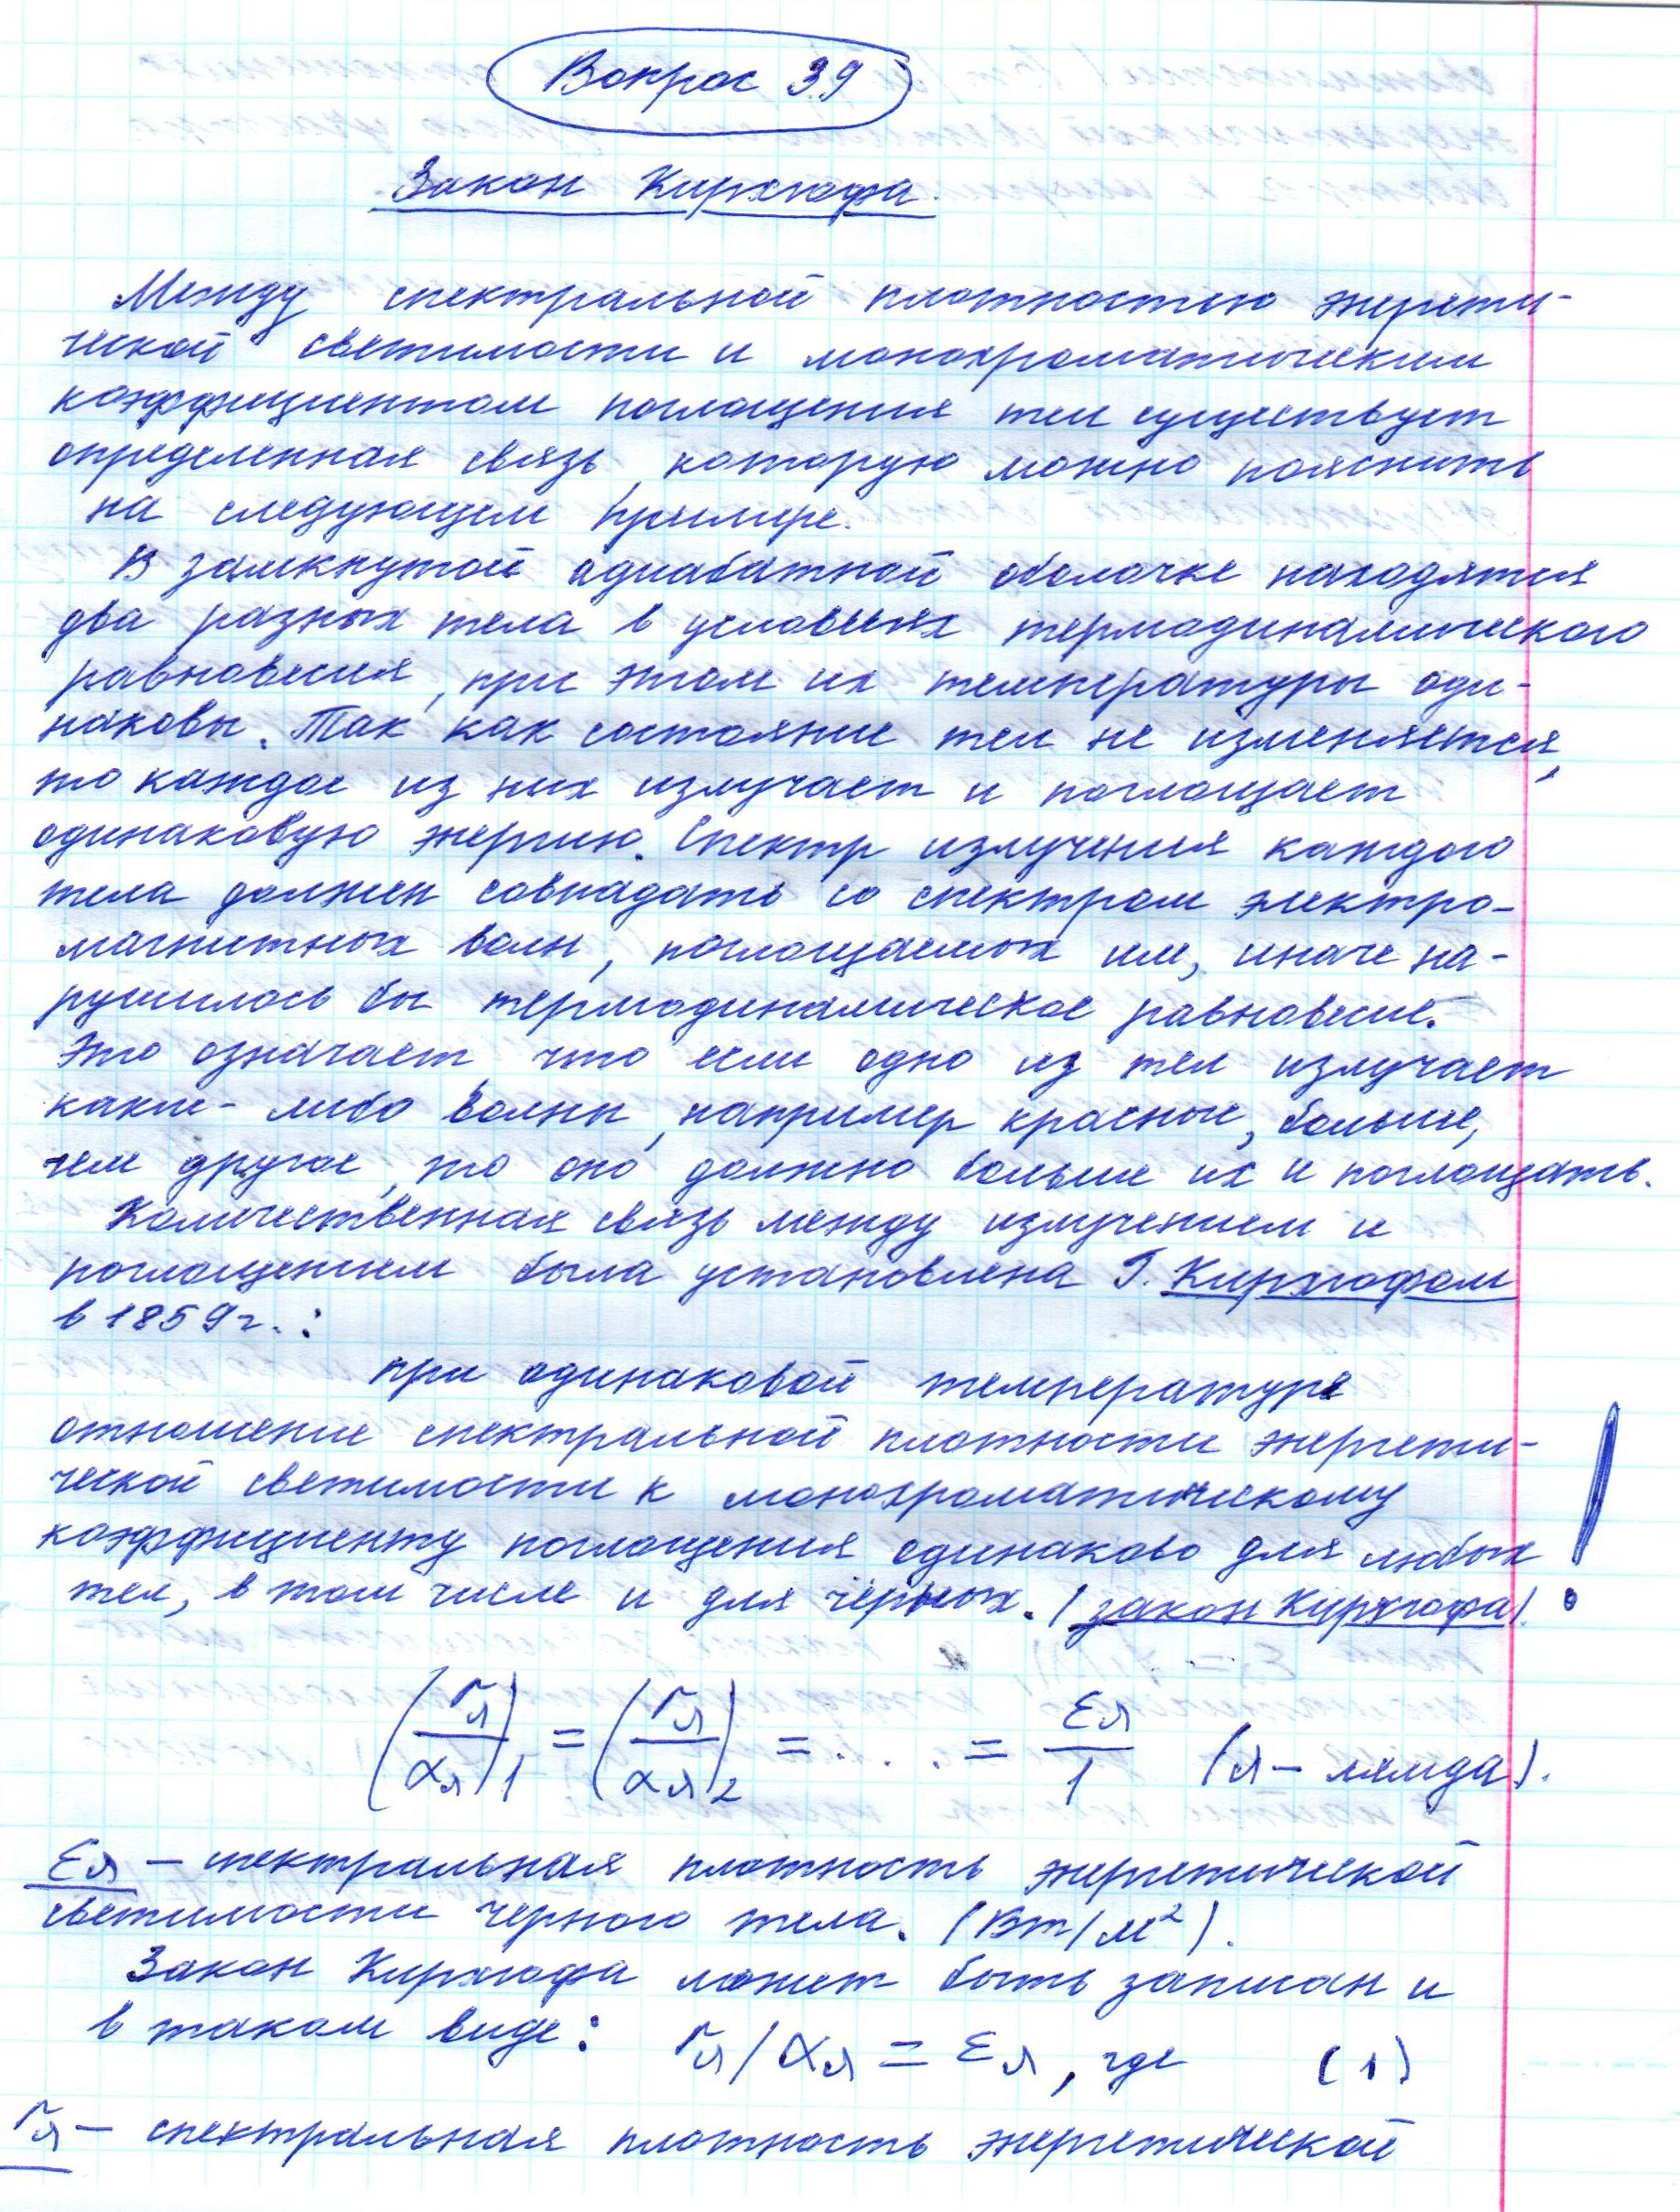 Вопрос 39
Закон Кирхгофа.
Между спектральной плотностью энергети-
ческой светимости и монохроматическим
коэффициентом поглощения тел существует
определенная связь, которую можно пояснить
на следующем примере.
В замкнутой адиабатной оболочке находятся
два разных тела в условиях термодинамического
равновесия, при этом их температуры оди-
наковы. Так как состояние тел не изменяется,
то каждое из них излучает и поглощает
одинаковую энергию. Спектр излучения каждого
тела должен совпадать со спектром электро-
магнитных волн, поглощаемых им, иначе на-
рушилось бы термодинамическое равновесие.
Это означает, что если одно из тел излучает
какие-либо волны, например красные, больше,
чем другое, то оно должно больше их и поглощать.
Количественная связь между излучением и
поглощением была установлена Г. Кирхгофом
в 1859г.:
при одинаковой температуре
отношение спектральной плотности энергети-
ческой светимости к монохроматическому
коэффициенту поглощения одинаково для любых
тел, в том числе и для чёрных. (закон Кирхгофа). !
(rλ/αλ)1 = (rλ/αλ)2 = .... = ελ/1 (λ – лямда).
ελ – спектральная плотность энергетической
светимости черного тела. (Вт/м²).
Закон Кирхгофа может быть записан и
в таком виде: rλ/αλ = ελ, где (1)
rλ – спектральная плотность энергетической